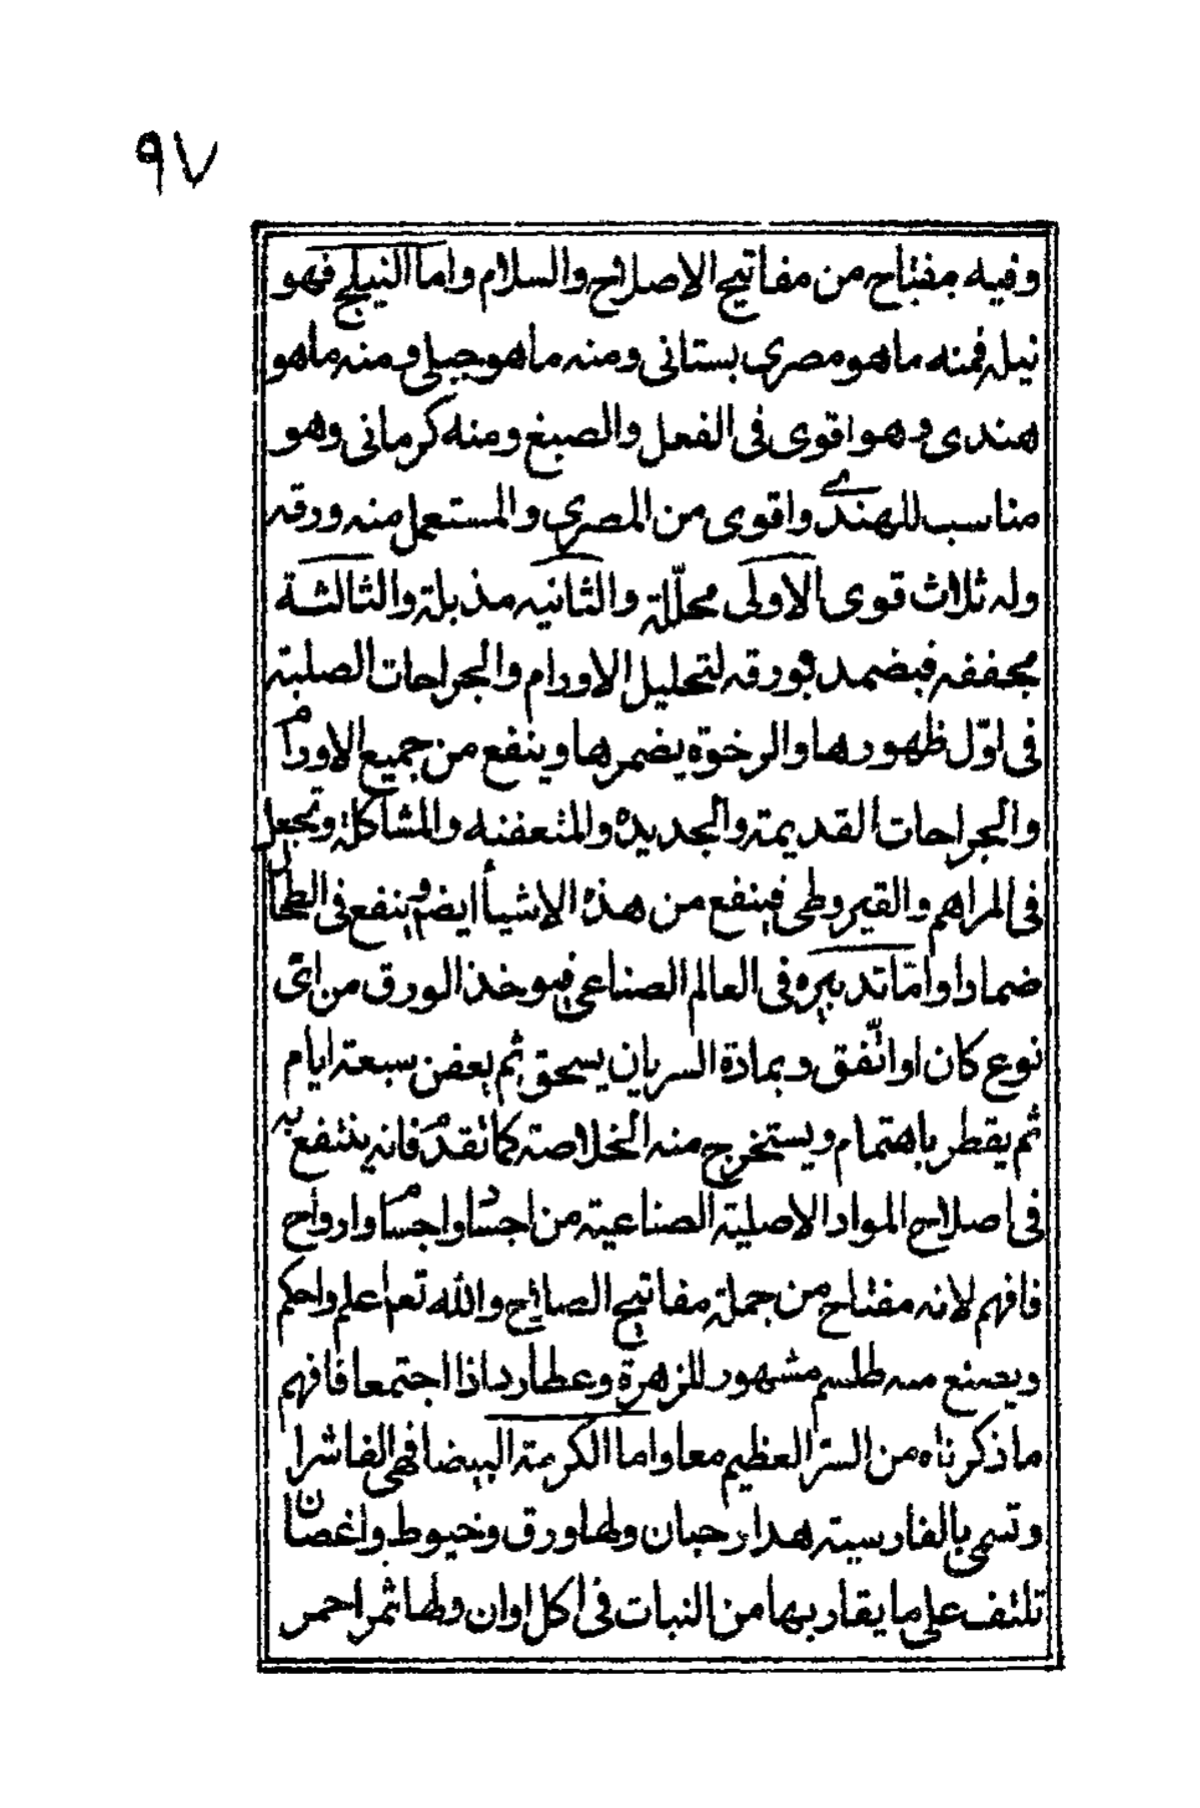 ٩٧
وفيه مفتاح من مفاتيح الاصلاح والسلام واما النيلج فهو
نيله فمنه ماهو مصري بستاني ومنه ماهو جبلي ومنه ماهو
هندي وهو اقوى في الفعل والصبغ ومنه كرماني وهو
مناسب للهندي واقوى من المصري والمستعمل منه ورقه
وله ثلاث قوى الاولى محلّلة والثانيه مذبلة والثالثة
مجففه فيضمد بورقه لتحليل الاورام والجراحات الصلبة
في اوّل ظهورها والرخوة يضمرها وينفع من جميع الاورام
والجراحات القديمة والجديدة والمتعفنه والمشاكلة وتجعل
في المراهم والقيروطي فينفع من هذه الاشيأ ايضا وينفع في الطحال
ضمادا وامّا تدبيره في العالم الصناعي فيوخذ الورق من اىّ
نوع كان او اتّفق وبمادة السريان يسحق ثم يعفن سبعة ايام
ثم يقطر باهتمام ويستخرج منه الخلاصة كما تقدم فانه ينتفع به
في اصلاح المواد الاصلية الصناعية من اجساد واجسام وارواح
فافهم لانه مفتاح من جملة مفاتيح الصالح والله تعم اعلم واحكم
ويصنع منه طلسم مشهور للزهرة وعطارد اذا اجتمعا فافهم
ما ذكرناه من السرّ العظيم معا واما الكرمة البيضا فهي الفاشرا
وتسمى بالفارسية هدارحبان ولها ورق وخيوط واغصان
تلتف على ما يقاربها من النبات في اكل اوان ولها ثمر احمر